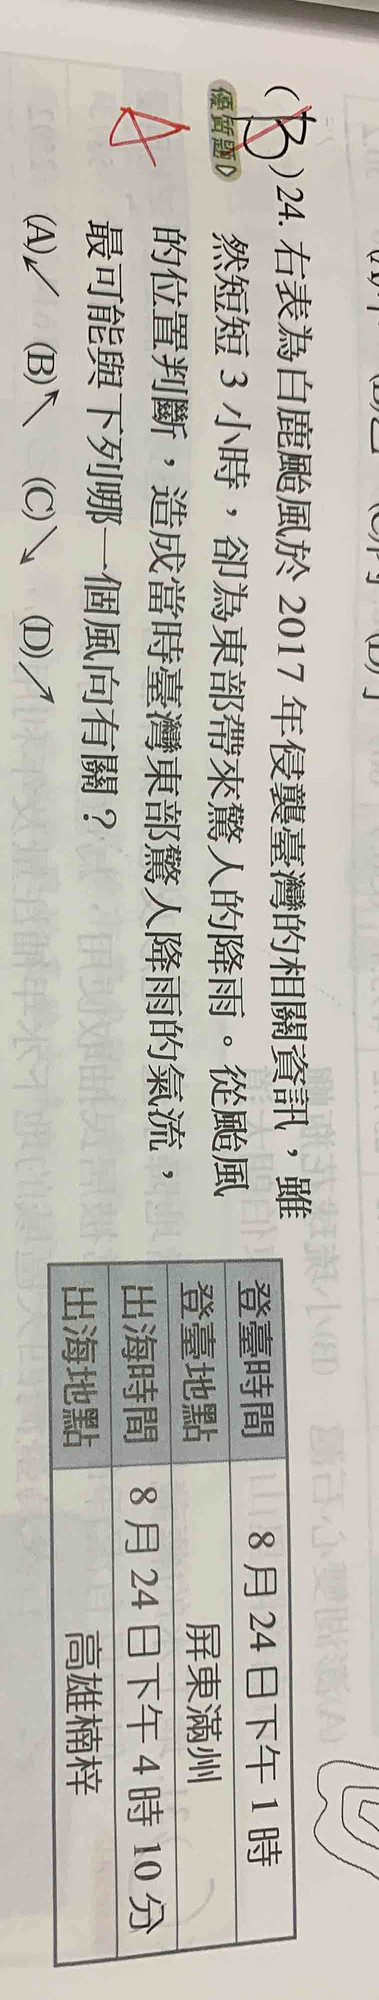 (B)24. 右表為白鹿颱風於 2017 年侵襲臺灣的相關資訊，雖
優質題
然短短 3 小時，卻為東部帶來驚人的降雨。從颱風
的位置判斷，造成當時臺灣東部驚人降雨的氣流，
最可能與下列哪一個風向有關？
(A)↙ (B)↖ (C)↘ (D)↗
登臺時間 8 月 24 日下午 1 時
登臺地點 屏東滿州
出海時間 8 月 24 日下午 4 時 10 分
出海地點 高雄楠梓